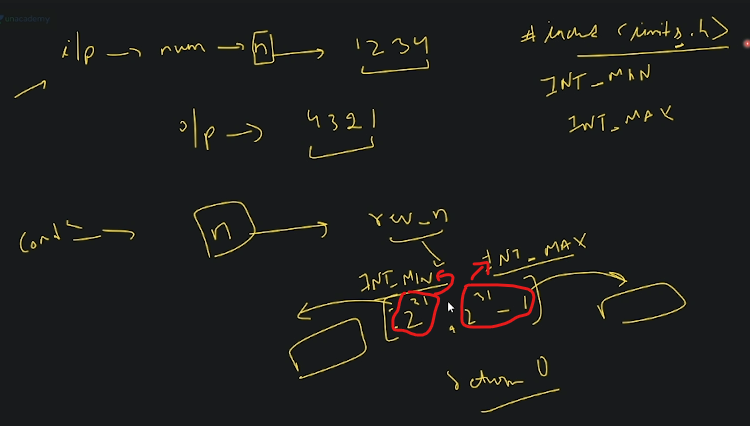 unacademy
i/p → num → n → 1234
# include <limits.h>
INT_MIN
INT_MAX
o/p → 4321
Condⁿ → n → rev_n
INT_MIN INT_MAX
[-2^31, 2^31 - 1]
return 0